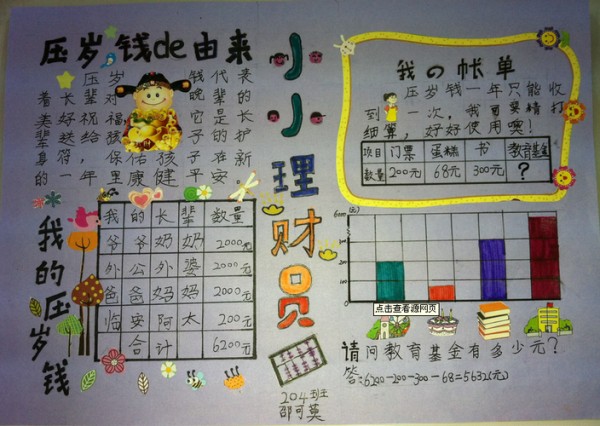 压岁钱de由来
压岁钱代表
着长辈对晚辈的
美好祝福,它是长
辈送给孩子的护
身符,保佑孩子在新
的一年里康健平安。
我的压岁钱
我的长辈 数量
爷爷奶奶 2000元
外公外婆 2000元
爸爸妈妈 2000元
临安阿太 200元
合计 6200元
小小理财员
204班
邵可英
我の帐单
压岁钱一年只能收
到一次,我可要精打
细算,好好使用噢!
项目 门票 蛋糕 书 教育基金
数量 200元 68元 300元 ?
(元)
点击查看源网页
请问教育基金有多少元?
答:6200-200-300-68=5632(元)